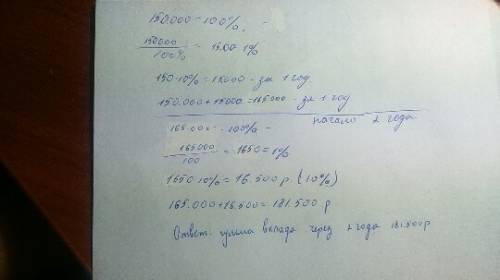 150.000 = 100% -
150000/100% = 1500 1%
150 10% = 15000 - за 1 год
150.000 + 15000 = 165000 - за 1 год
начало 2 года
165.000 - 100% -
165000/100 = 1650 = 1%
1650 10% = 16.500 р (10%)
165.000 + 16.500 = 181.500 р
Ответ: сумма вклада через 2 года 181.500 р